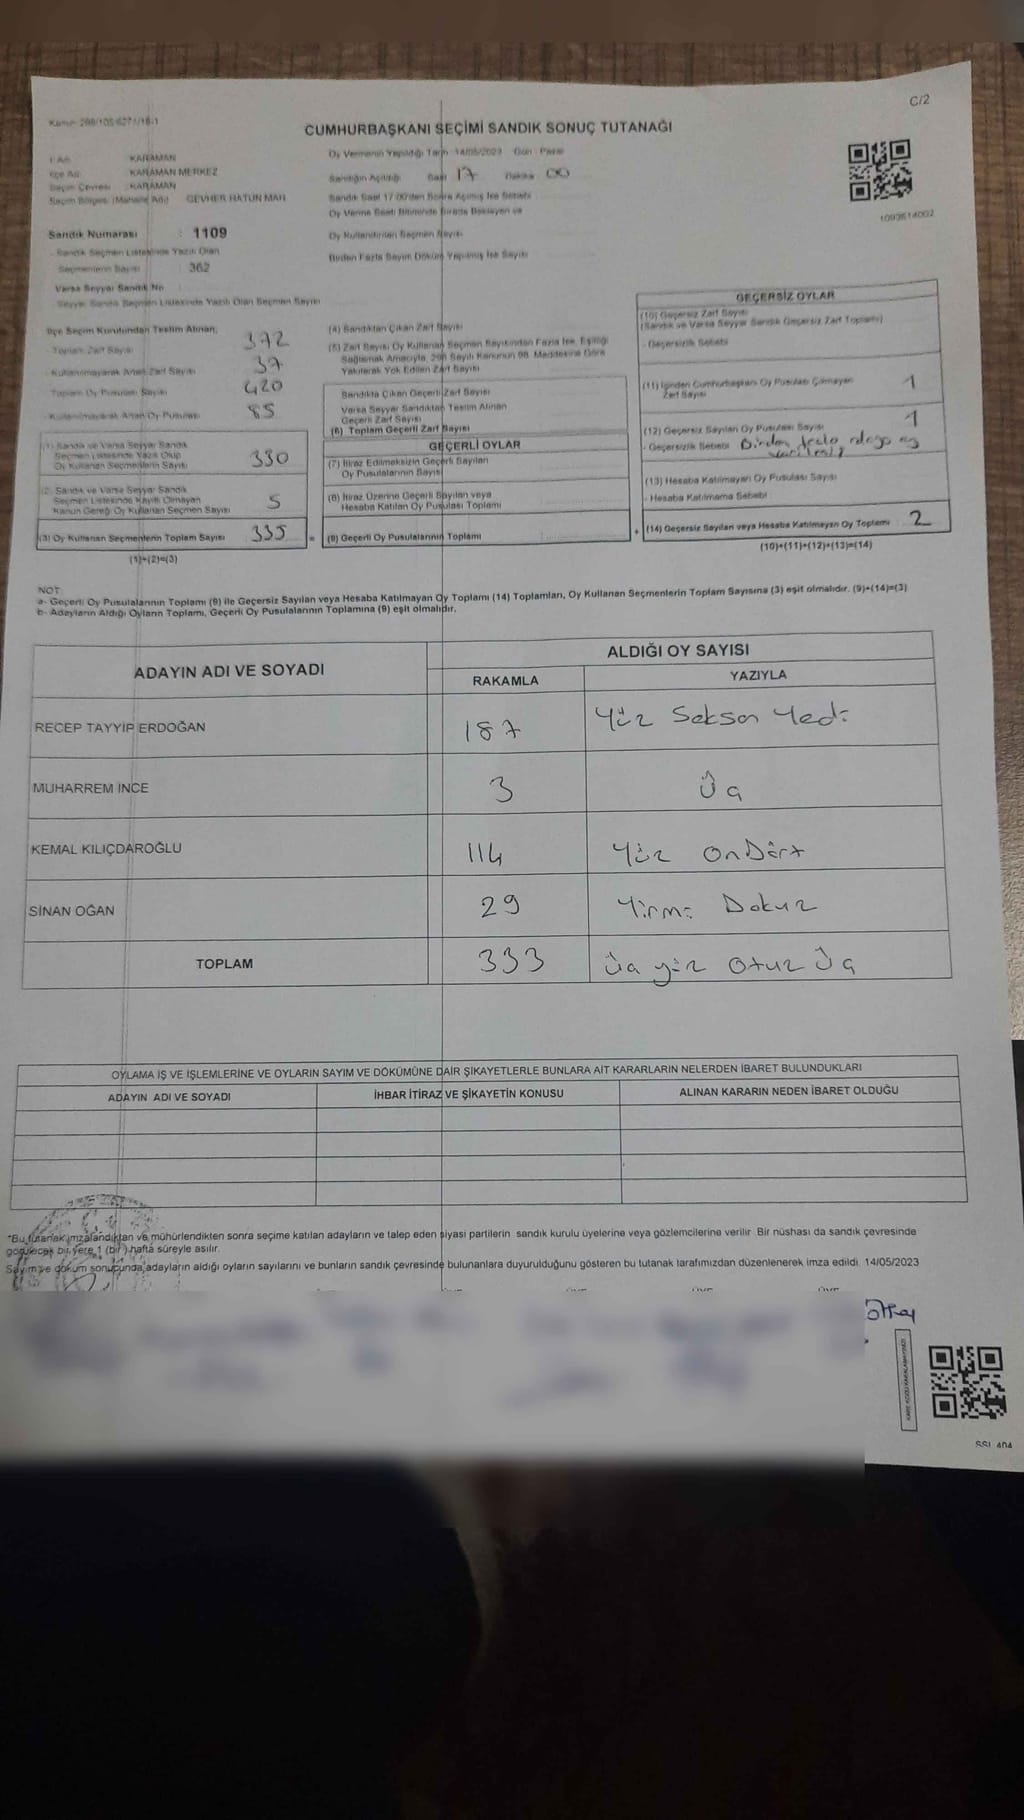 C/2
CUMHURBAŞKANI SEÇİMİ SANDIK SONUÇ TUTANAĞI
İl Adı KARAMAN
İlçe Adı KARAMAN MERKEZ
Seçim Çevresi : KARAMAN
Seçim Bölgesi (Mahalle Adı) GEVHER HATUN MAH.
Oy Vermenin Yapıldığı Tarih 14/05/2023 Gün : Pazar
Sandığın Açıldığı Saat 17 Dakika 00
Sandık Saat 17.00'den Sonra Açılmış İse Sebebi
Oy Verme Saati Bitiminde Sırada Bekleyen ve
Oy Kullandırılan Seçmen Sayısı
Birden Fazla Sayım Döküm Yapılmış İse Sayısı
1093514002
Sandık Numarası : 1109
- Sandık Seçmen Listesinde Yazılı Olan
Seçmenlerin Sayısı 362
Varsa Seyyar Sandık No
Seyyar Sandık Seçmen Listesinde Yazılı Olan Seçmen Sayısı
İlçe Seçim Kurulundan Teslim Alınan;
- Toplam Zarf Sayısı 372
- Kullanılmayarak Artan Zarf Sayısı 37
Toplam Oy Pusulası Sayısı 420
- Kullanılmayarak Artan Oy Pusulası 85
(1) Sandık ve Varsa Seyyar Sandık
Seçmen Listesinde Yazılı Olup
Oy Kullanan Seçmenlerin Sayısı 330
(2) Sandık ve Varsa Seyyar Sandık
Seçmen Listesinde Kayıtlı Olmayan
Kanun Gereği Oy Kullanan Seçmen Sayısı 5
(3) Oy Kullanan Seçmenlerin Toplam Sayısı 335
(1)+(2)=(3)
(4) Sandıktan Çıkan Zarf Sayısı
(5) Zarf Sayısı Oy Kullanan Seçmen Sayısından Fazla İse, Eşitliği
Sağlamak Amacıyla, 298 Sayılı Kanunun 98. Maddesine Göre
Yakılarak Yok Edilen Zarf Sayısı
Sandıkta Çıkan Geçerli Zarf Sayısı
Varsa Seyyar Sandıktan Teslim Alınan
Geçerli Zarf Sayısı
(6) Toplam Geçerli Zarf Sayısı
GEÇERLİ OYLAR
(7) İtiraz Edilmeksizin Geçerli Sayılan
Oy Pusulalarının Sayısı
(8) İtiraz Üzerine Geçerli Sayılan veya
Hesaba Katılan Oy Pusulası Toplamı
= (9) Geçerli Oy Pusulalarının Toplamı
GEÇERSİZ OYLAR
(10) Geçersiz Zarf Sayısı
(Sandık ve Varsa Seyyar Sandık Geçersiz Zarf Toplamı)
- Geçersizlik Sebebi
(11) İçinden Cumhurbaşkanı Oy Pusulası Çıkmayan
Zarf Sayısı 1
(12) Geçersiz Sayılan Oy Pusulası Sayısı 1
- Geçersizlik Sebebi Birden fazla adaya oy
verilmiş
(13) Hesaba Katılmayan Oy Pusulası Sayısı
- Hesaba Katılmama Sebebi
+ (14) Geçersiz Sayılan veya Hesaba Katılmayan Oy Toplamı 2
(10)+(11)+(12)+(13)=(14)
NOT:
a- Geçerli Oy Pusulalarının Toplamı (9) ile Geçersiz Sayılan veya Hesaba Katılmayan Oy Toplamı (14) Toplamları, Oy Kullanan Seçmenlerin Toplam Sayısına (3) eşit olmalıdır. (9)+(14)=(3)
b- Adayların Aldığı Oyların Toplamı, Geçerli Oy Pusulalarının Toplamına (9) eşit olmalıdır.
ADAYIN ADI VE SOYADI
ALDIĞI OY SAYISI
RAKAMLA YAZIYLA
RECEP TAYYİP ERDOĞAN 187 Yüz Seksen Yedi
MUHARREM İNCE 3 Üç
KEMAL KILIÇDAROĞLU 114 Yüz OnDört
SİNAN OĞAN 29 Yirmi Dokuz
TOPLAM 333 Üç yüz Otuz Üç
OYLAMA İŞ VE İŞLEMLERİNE VE OYLARIN SAYIM VE DÖKÜMÜNE DAİR ŞİKAYETLERLE BUNLARA AİT KARARLARIN NELERDEN İBARET BULUNDUKLARI
ADAYIN ADI VE SOYADI İHBAR İTİRAZ VE ŞİKAYETİN KONUSU ALINAN KARARIN NEDEN İBARET OLDUĞU
"Bu tutanak imzalandıktan ve mühürlendikten sonra seçime katılan adayların ve talep eden siyasi partilerin sandık kurulu üyelerine veya gözlemcilerine verilir. Bir nüshası da sandık çevresinde
görülecek bir yere 1 (bir) hafta süreyle asılır.
Sayım ve döküm sonucunda adayların aldığı oyların sayılarını ve bunların sandık çevresinde bulunanlara duyurulduğunu gösteren bu tutanak tarafımızdan düzenlenerek imza edildi. 14/05/2023